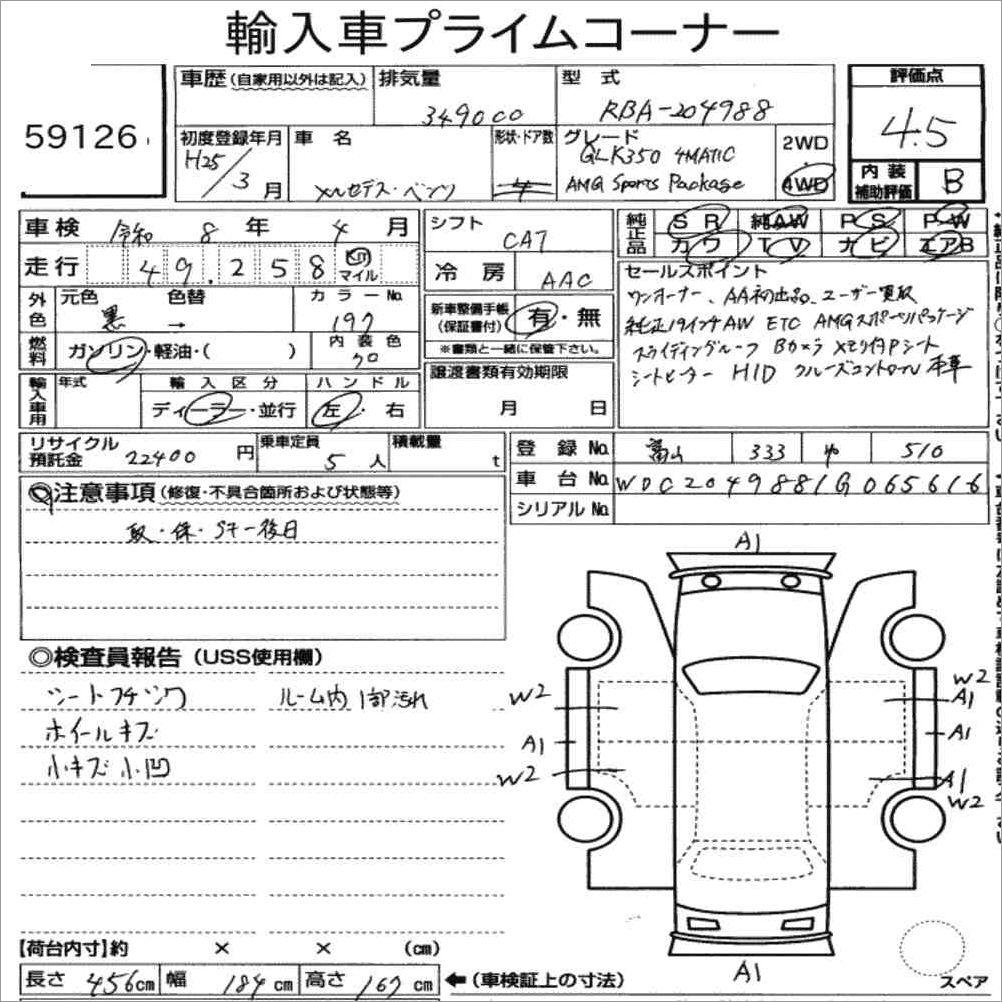 輸入車プライムコーナー
59126
車歴(自家用以外は記入)
排気量
349000
型 式
RBA-204988
評価点
4.5
初度登録年月
H25/3月
車 名
メルセデス・ベンツ
形状・ドア数
4
グレード
GLK350 4MATIC
AMG Sports Package
2WD
4WD
内 装
補助評価
B
車検 令和 8 年 4 月
走行 49.258 マイル
シフト
CA7
冷 房 AAC
純正品
SR 純AW PS PW
カワ TV ナビ エアB
セールスポイント
ワンオーナー、AA初出品、ユーザー買取
純正19インチAW ETC AMGスポーツパッケージ
スライディングルーフ Bカメラ メモリ付Pシート
シートヒーター HID クルーズコントロール 本革
外色
元色 色替 カラーNo.
黒 → 197
新車整備手帳
(保証書付)
有・無
※書類と一緒に保管下さい。
燃料
ガソリン・軽油・( )
内 装 色
クロ
譲渡書類有効期限
月 日
輸入車用
年式
輸 入 区 分
ディーラー・並行
ハ ン ド ル
左・右
リサイクル
預託金 22400 円
乗車定員
5 人
積載量
t
登 録 No. 富山 333 や 510
車 台 No. WDC2049881G065616
シリアル No.
◎注意事項(修復・不具合箇所および状態等)
取・保・Sキー後日
◎検査員報告(USS使用欄)
シートフチツク
ルーム内1部汚れ
ホイールキズ
小キズ小凹
A1
W2
A1
W2
W2
A1
A1
A1
W2
A1
スペア
【荷台内寸】約 × × (cm)
長さ 456cm 幅 184cm 高さ 167cm
←(車検証上の寸法)